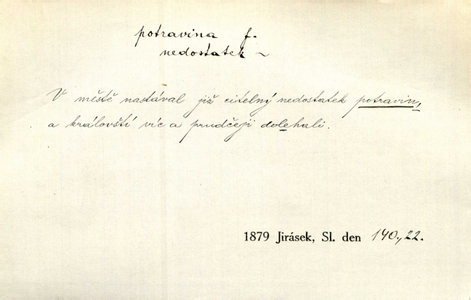 potravina f.
nedostatek ~
V městě nadával již citelný nedostatek potravin,
a královští víc a prudčeji dolehali.
1879 Jirásek, Sl. den 140, 22.